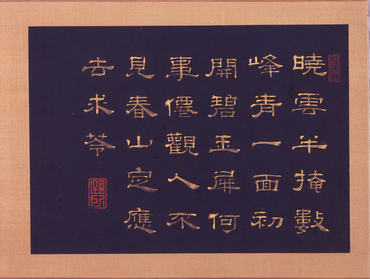 曉雲半掩數
峰青一面初
開碧玉屏何
事僊觀人不
見春山定應
去求苓